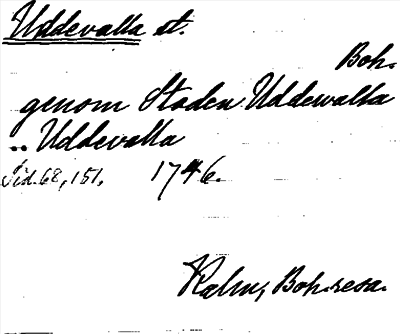 Uddevalla st.
Boh.
genom Staden Uddewalla
.. Uddevalla
Sid. 68, 151. 1746.
Kalm, Boh. resa.